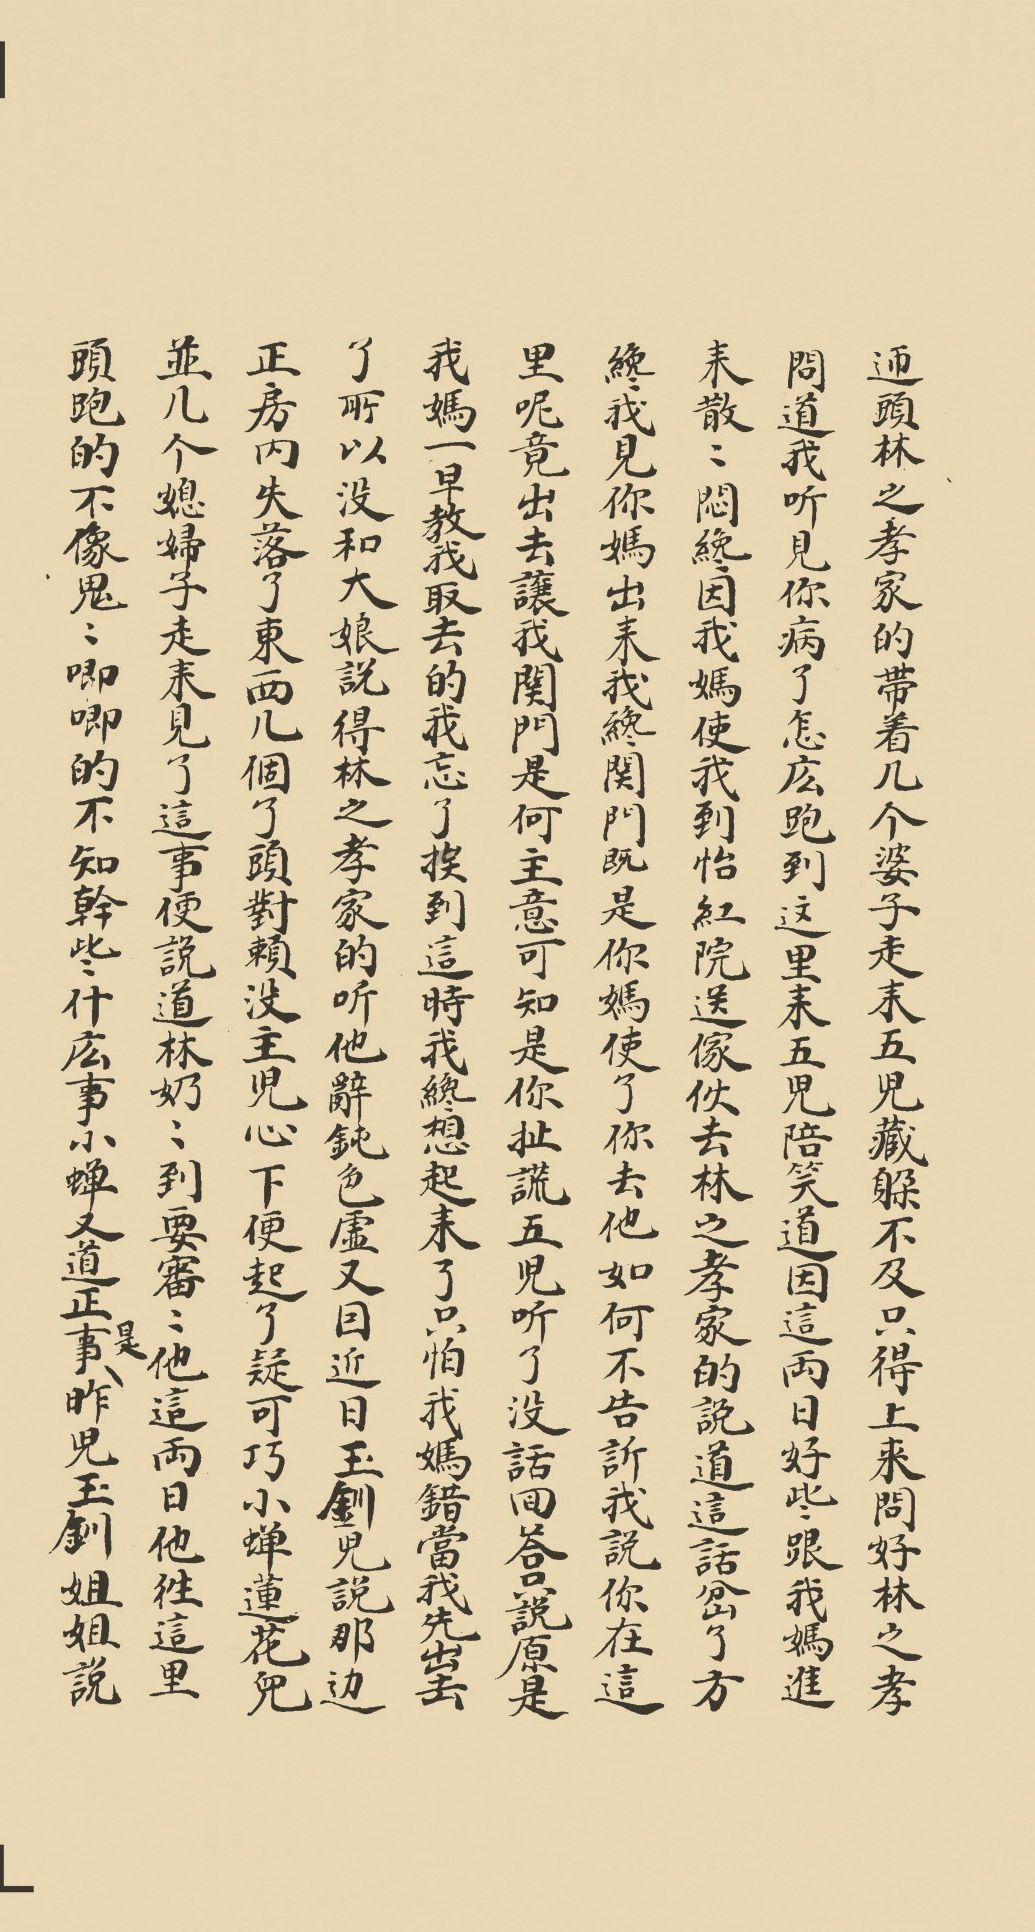 逥頭林之孝家的带着几个婆子走来五児藏躱不及只得上来問好林之孝
問道我听見你病了怎庅跑到这里来五児陪笑道因這両日好些跟我媽進
来散〻悶纔因我媽使我到怡紅院送傢伙去林之孝家的説道這話岔了方
纔我見你媽出来我纔関門既是你媽使了你去他如何不告訴我説你在這
里呢竟出去譲我関門是何主意可知是你扯謊五児听了没話回荅只説原是
我媽一早教我取去的我忘了挨到這時我纔想起来了只怕我媽錯當我先出去
了所以没和大娘説得林之孝家的听他辭鈍色虚又因近日玉釧児説那边
正房内失落了東西几個了頭對頼没主児心下便起了疑可巧小蝉蓮花兒
並几个媳婦子走来見了這事便説道林奶〻到要審〻他這両日他徃這里
頭跑的不像鬼〻唧唧的不知幹些什庅事小蝉又道正是事昨児玉釧姐姐説